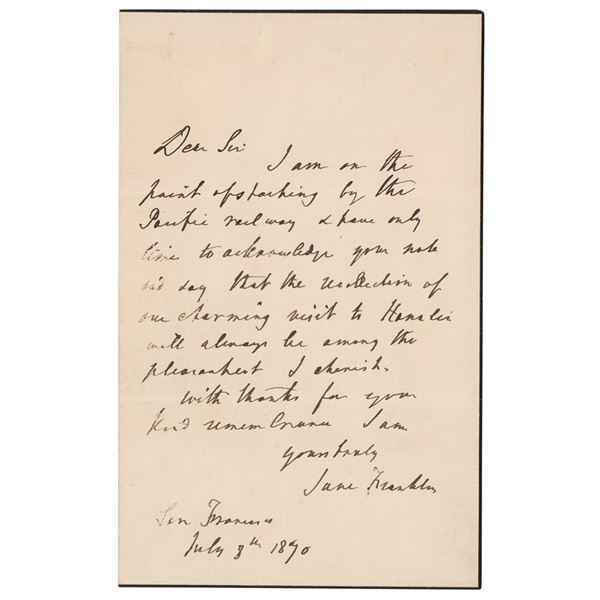 Dear Sir
I am on the
point of starting by the
Pacific railway & have only
time to acknowledge your note
and say that the recollection of
our charming visit to Hanalei
will always be among the
pleasantest I cherish.
With thanks for your
kind remembrance I am
yours truly
Jane Franklin
San Francisco
July 8th 1870